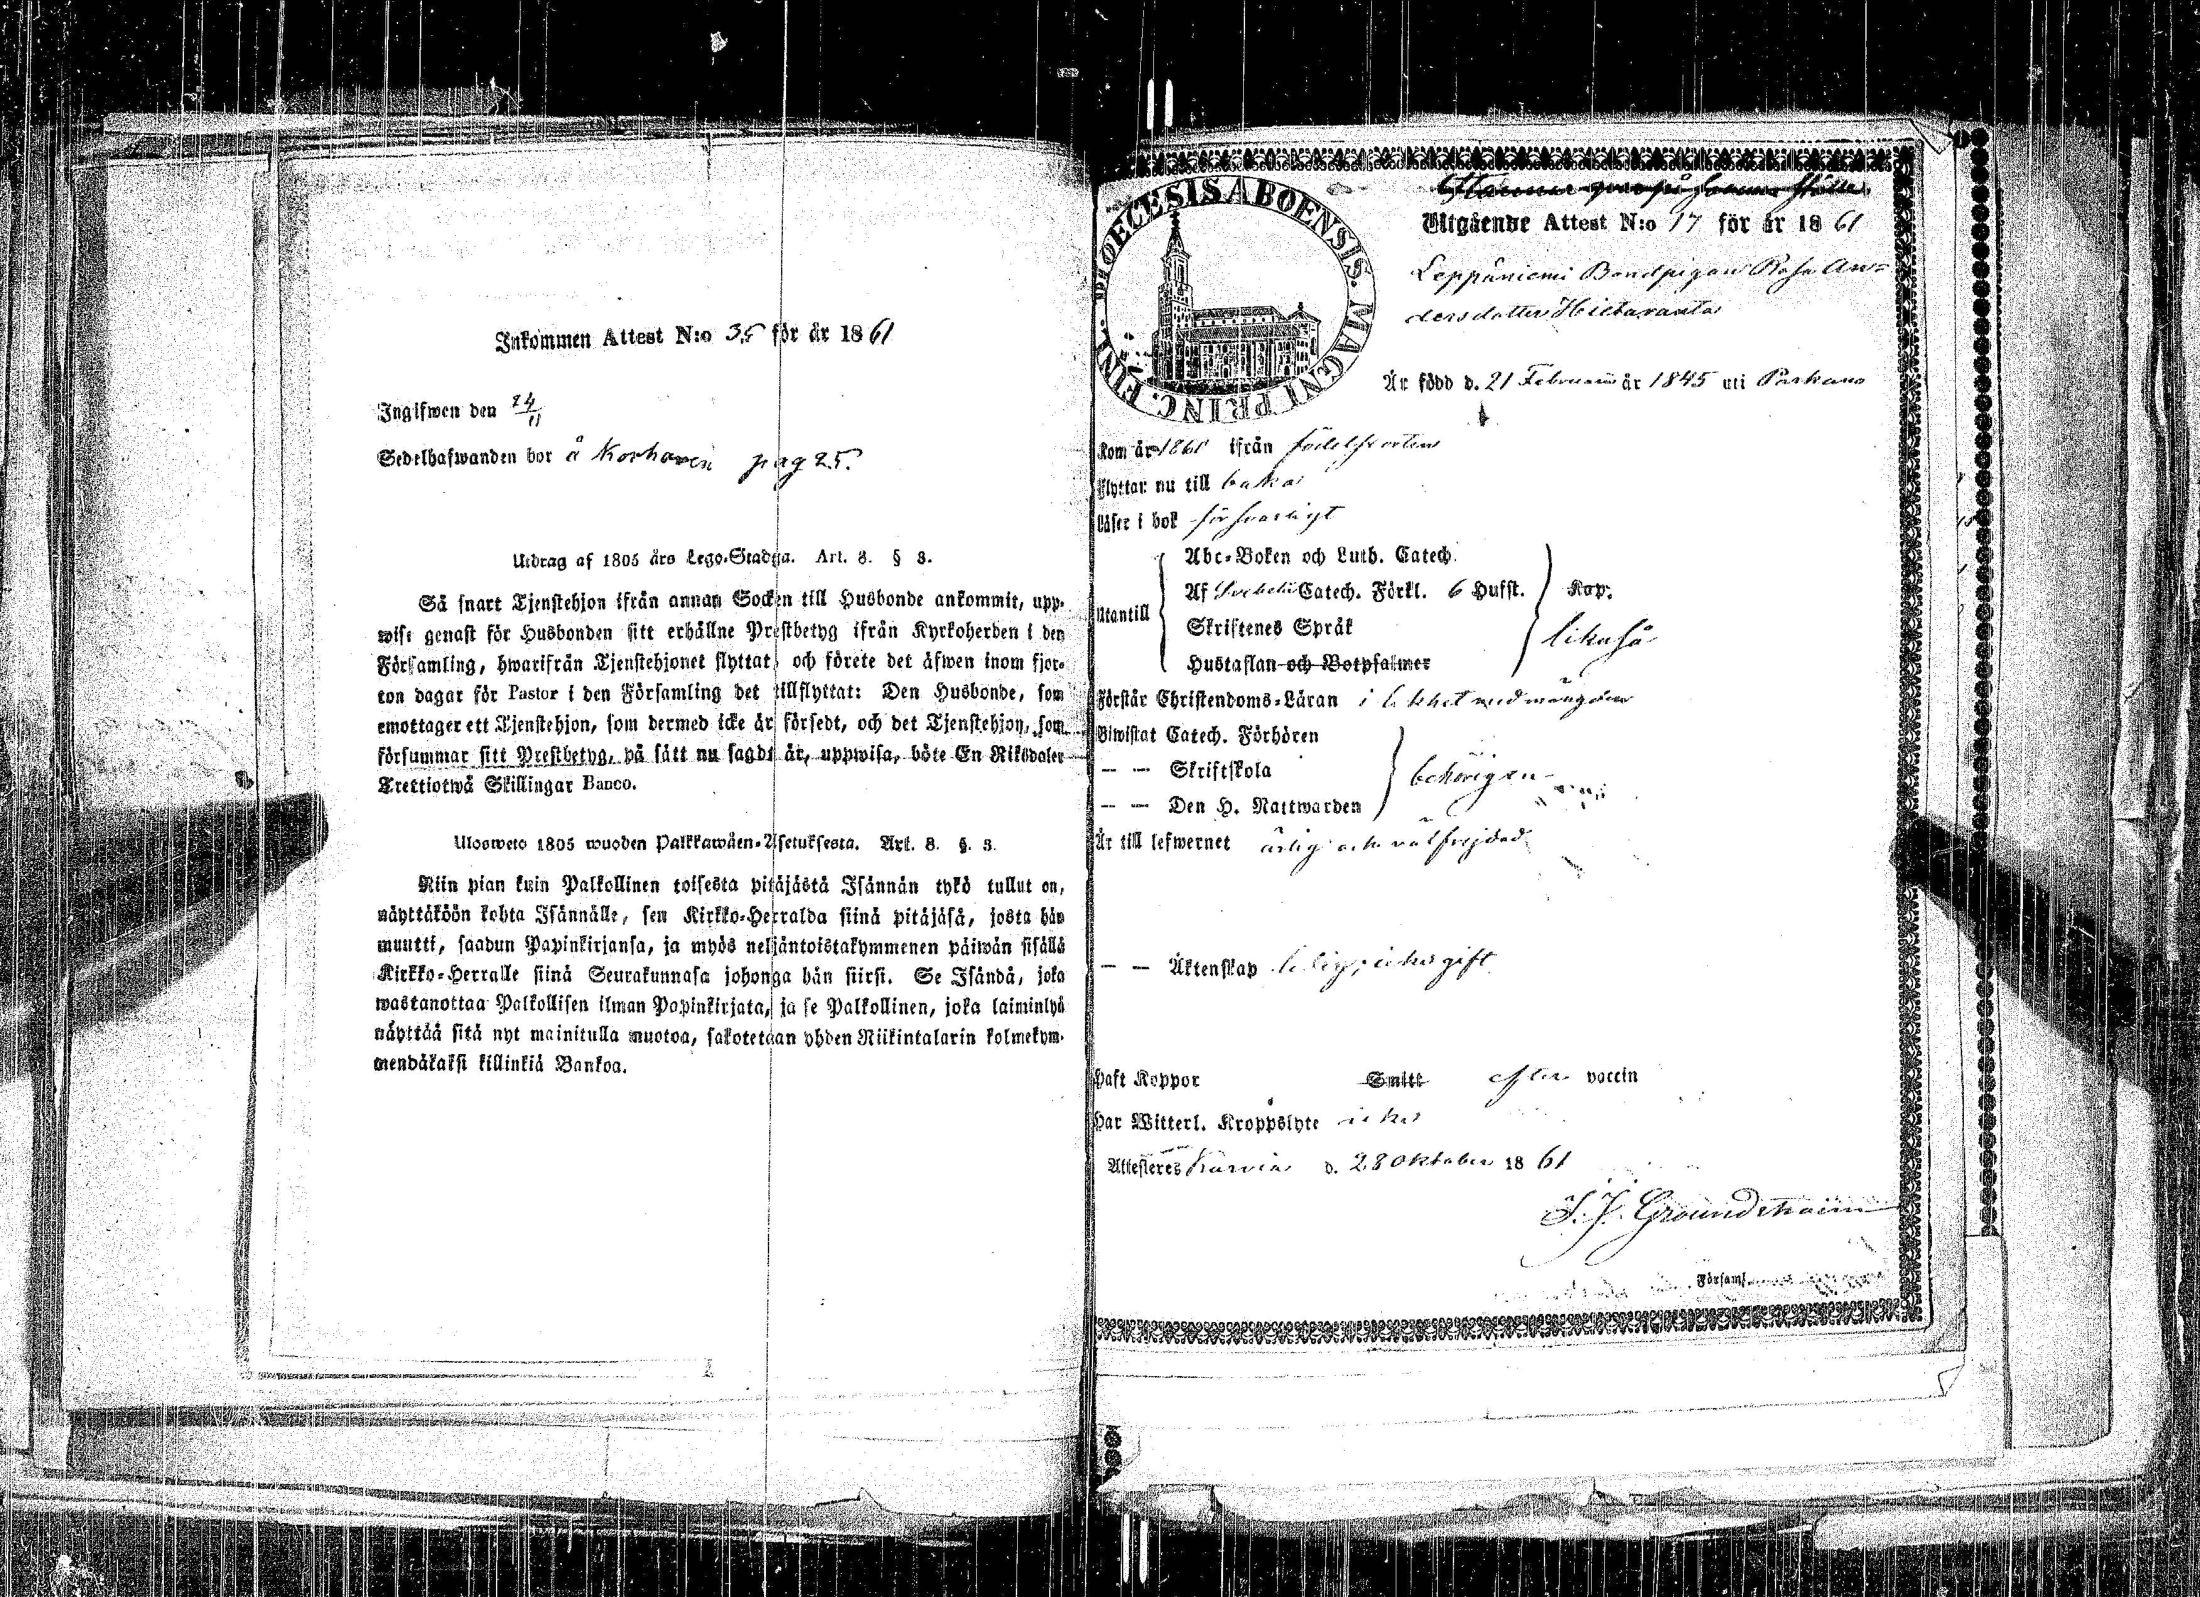 Inkommen Attest N:o 35 för år 1861
Ingifwen den 24/11
Sedelhafwanden bor å Korhonen pag 25.
Utdrag af 1805 års Lego-Stadga. Art. 8. § 3.
Så snart Tjenstehjon ifrån annan Socken till Husbonde ankommit, upp-
wise genast för Husbonden sitt erhållne Prestbetyg ifrån Kyrkoherden i den
Församling, hwarifrån Tjenstehjonet flyttat, och förete det äfwen inom fjor-
ton dagar för Pastor i den Församling det tillflyttat: Den Husbonde, som
emottager ett Tjenstehjon, som dermed icke är försedt, och det Tjenstehjon, som
försummar sitt Prestbetyg, på sätt nu sagdt är, uppwisa, böte En Riksdaler
Trettiotwå Skillingar Banco.
Ulosweto 1805 wuoden Palkkawäen-Asetuksesta. Art. 8. §. 3.
Niin pian kuin Palkollinen toisesta pitäjästä Isännän tykö tullut on,
näyttäköön kohta Isännälle, sen Kirkko-Herralda siinä pitäjäsä, josta hän
muutti, saadun Papinkirjansa, ja myös neljäntoistakymmenen päiwän sisällä
Kirkko-Herralle siinä Seurakunnasa johonga hän siirsi. Se Isändä, joka
wastanottaa Palkollisen ilman Papinkirjata, ja se Palkollinen, joka laiminlyö
näyttää sitä nyt mainitulla muotoa, sakotetaan yhden Riikintalarin kolmekym-
mendäkaksi killinkiä Bankoa.
DIOECESIS ABOENSIS. MAGNI PRINC. FINL.
Utgående Attest N:o 17 för år 1861
Leppäniemi Bondpigan Rosa An-
dersdotter Hietaranta
Är född d. 21 Februarii år 1845 uti Parkano
Kom år 1861 ifrån födelseorten
Flyttar nu till baka
Läser i bok försvarligt
Utantill
Abc-Boken och Luth. Catech.
Af Svebelii Catech. Förkl. 6 Hufst.
Skriftenes Språk
Hustaflan och Botpsalmer
Kap.
likaså
Förstår Christendoms-Läran i likhet med mången
Biwistat Catech. Förhören
— — Skriftskola
— — Den H. Nattwarden
behörigen
Är till lefwernet ärlig och välfrejdad
— — Äktenskap ledig; icke gift
Haft Koppor Smitt efter vaccin
Har Witterl. Kroppslyte icke
Attesteres Karvia d. 28 Oktober 1861
Församl.